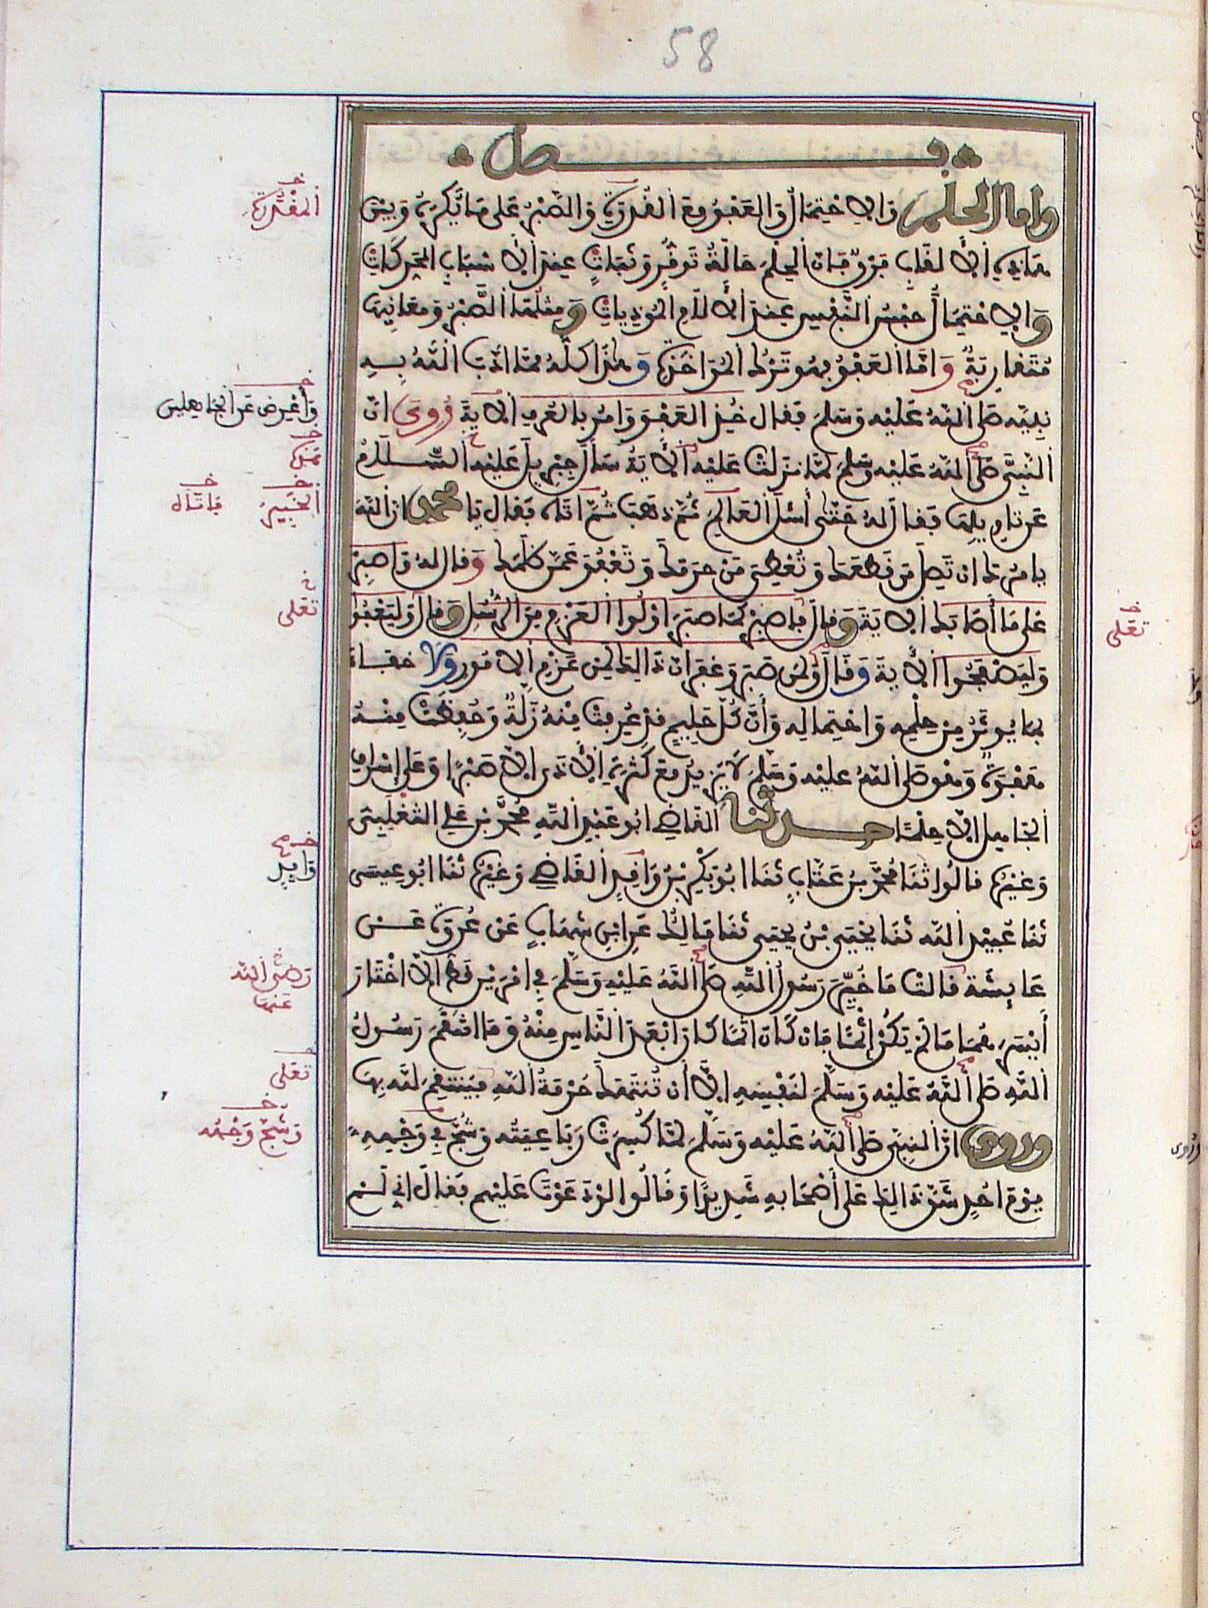 58
فصل
وأما الحلم والاحتمال والعفو مع القدرة والصبر على ما يكره وبين
هذه الألقاب فرق فإن الحلم حالة توقر وثبات عند الأسباب المحركات
والاحتمال حبس النفس عند الآلام المؤذيات ومثلها الصبر ومعانيها
متقاربة وأما العفو فهو ترك المؤاخذة وهذا كله مما أدب الله به
نبيه صلى الله عليه وسلم فقال خذ العفو وامر بالعرف الآية روي أن
النبي صلى الله عليه وسلم لما نزلت عليه الآية سأل جبريل عليه السلام
عن تاويلها فقال له حتى أسأل العالم ثم ذهب ثم اتاه فقال يا محمد إن الله
يامرك ان تصل من قطعك وتعطي من حرمك وتعفو عمن ظلمك وقال له واصبر
على ما أصابك الآية وقال فاصبر كما صبر اولوا العزم من الرسل وقال وليعفوا
وليصفحوا الآية وقال ولمن صبر وغفر ان ذالك لمن عزم الامور ولا خفاء
بما يوثر من حلمه واحتماله وأن كل حليم قد عرفت منه زلة وحفظت منه
هفوة وهو صلى الله عليه وسلم لا يزيد مع كثرة الأذى الا صبرا وعلى إسراف
الجاهل الا حلما حدثنا القاضي ابو عبد الله محمد بن علي التغلبي
وغيره قالوا ثنا محمد بن عتاب ثنا ابو بكر بن وافد القاضي وغيره ثنا ابو عيسى
ثنا عبيد الله ثنا يحيى بن يحيى ثنا مالك عن ابن شهاب عن عروة عن
عايشة قالت ما خير رسول الله صلى الله عليه وسلم في امرين قط الا اختار
أيسرهما ما لم يكن إثما فان كان اثما كان ابعد الناس منه وما انتقم رسول
الله صلى الله عليه وسلم لنفسه الا أن تنتهك حرمة الله فينتقم لله بها
وروي ان النبي صلى الله عليه وسلم لما كسرت رباعيته وشج في وجهه
يوم احد شق ذالك على أصحابه شديدا وقالوا لو دعوت عليهم فقال اني لم
المقدرة
وأعرض عن الجاهلين
الخبير
فأتاه
تعلى
تعلى
وافد
رضي الله
عنها
تعلى
وشج وجهه